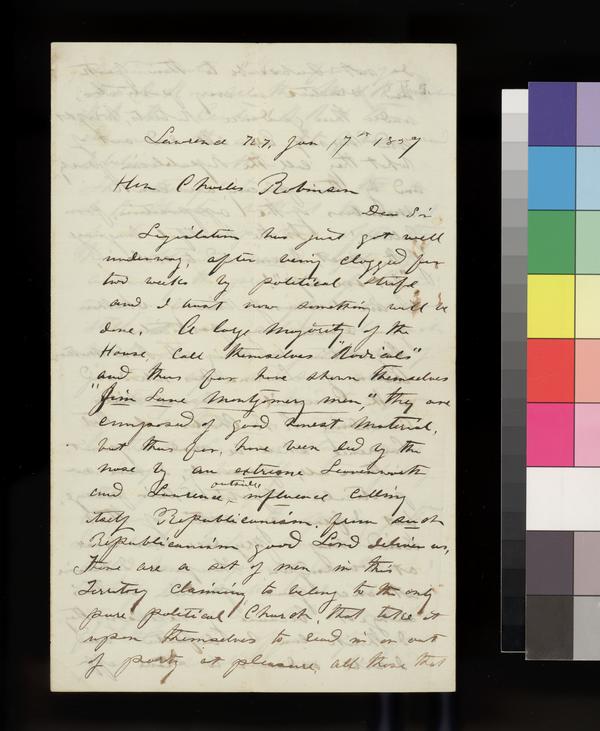 Lawrence K.T. Jan 17th 1859
Hon Charles Robinson
Dear Sir
Legislation has just got well
underway, after being clogged for
two weeks by political strife
and I trust now something will be
done. A large Majority of the
House, call themselves "Radicals"
and thus far have shown themselves
"Jim Lane Montgomery men," they are
composed of good honest Material,
but thus far, have been led by the
nose by an extreme Leavenworth
and Lawrence, outside influence calling
itself Republicanism, from such
Republicanism good Lord deliver us,
There are a set of men in this
Territory claiming to belong to the only
pure political Church, that take it
upon themselves to read in or out
of party at pleasure, all those that